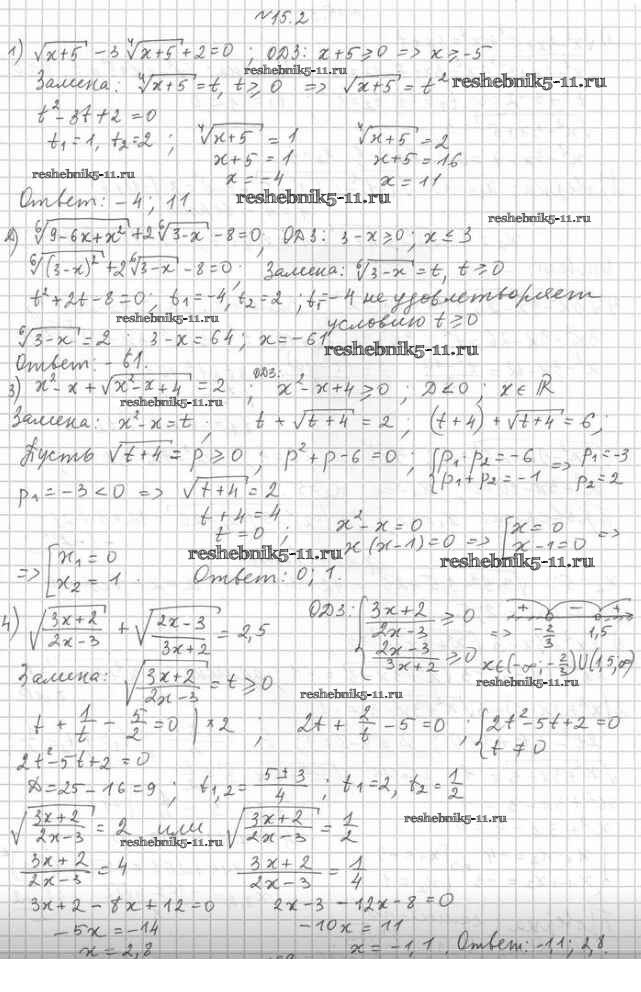 №15.2
1) √(x+5) - 3 ⁴√(x+5) + 2 = 0 ; ОДЗ: x+5 ≥ 0 => x ≥ -5
reshebnik5-11.ru
Замена: ⁴√(x+5) = t, t ≥ 0 => √(x+5) = t²
reshebnik5-11.ru
t² - 3t + 2 = 0
t₁ = 1, t₂ = 2 ; ⁴√(x+5) = 1 ⁴√(x+5) = 2
x+5 = 1 x+5 = 16
reshebnik5-11.ru
x = -4 x = 11
Ответ: -4 ; 11.
reshebnik5-11.ru
reshebnik5-11.ru
2) ⁶√(9-6x+x²) + 2 ⁶√(3-x) - 8 = 0 ; ОДЗ: 3-x ≥ 0 ; x ≤ 3
⁶√((3-x)²) + 2 ⁶√(3-x) - 8 = 0 ; Замена: ⁶√(3-x) = t, t ≥ 0
t² + 2t - 8 = 0 ; t₁ = -4, t₂ = 2 ; t₁ = -4 не удовлетворяет
reshebnik5-11.ru
условию t ≥ 0
⁶√(3-x) = 2 ; 3-x = 64 ; x = -61
reshebnik5-11.ru
Ответ: -61.
3) x² - x + √(x²-x+4) = 2 ; ОДЗ: x²-x+4 ≥ 0 ; D < 0 ; x ∈ ℝ
reshebnik5-11.ru
Замена: x² - x = t ; t + √(t+4) = 2 ; (t+4) + √(t+4) = 6 ;
Пусть √(t+4) = p ≥ 0 ; p² + p - 6 = 0 ; { p₁·p₂ = -6 p₁+p₂ = -1 => p₁ = -3 p₂ = 2
p₁ = -3 < 0 => √(t+4) = 2
t+4 = 4
t = 0 ; x² - x = 0
x(x-1) = 0 => [ x = 0 x-1 = 0 =>
reshebnik5-11.ru
reshebnik5-11.ru
=> [ x₁ = 0 x₂ = 1 . Ответ: 0; 1.
4) √((3x+2)/(2x-3)) + √((2x-3)/(3x+2)) = 2,5 ОДЗ: { (3x+2)/(2x-3) ≥ 0 (2x-3)/(3x+2) ≥ 0 => + - + -2/3 1,5
x ∈ (-∞; -2/3) ∪ (1,5; ∞)
reshebnik5-11.ru
Замена: √((3x+2)/(2x-3)) = t ≥ 0
reshebnik5-11.ru
t + 1/t - 5/2 = 0 | ×2 ; 2t + 2/t - 5 = 0 ; { 2t² - 5t + 2 = 0 t ≠ 0
2t² - 5t + 2 = 0
D = 25 - 16 = 9 ; t₁,₂ = (5±3)/4 ; t₁ = 2, t₂ = 1/2
√((3x+2)/(2x-3)) = 2 или √((3x+2)/(2x-3)) = 1/2
reshebnik5-11.ru
reshebnik5-11.ru
(3x+2)/(2x-3) = 4 (3x+2)/(2x-3) = 1/4
3x+2 - 8x + 12 = 0 2x-3 - 12x - 8 = 0
-5x = -14 -10x = 11
x = 2,8 x = -1,1 . Ответ: -1,1; 2,8.